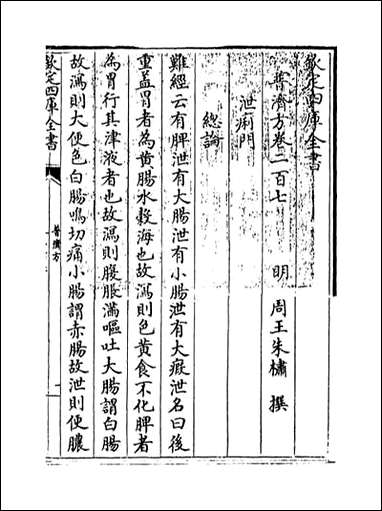 欽定四庫全書
普濟方卷二百七
明 周王朱橚 撰
泄痢門
總論
難經云有脾泄有大腸泄有小腸泄有大瘕泄名曰後
重蓋胃者為黄腸水穀海也故瀉則色黄食不化脾者
為胃行其津液者也故瀉則腹脹滿嘔吐大腸謂白腸
故瀉則大便色白腸鳴切痛小腸謂赤腸故泄則便膿
欽定四庫全書
普濟方